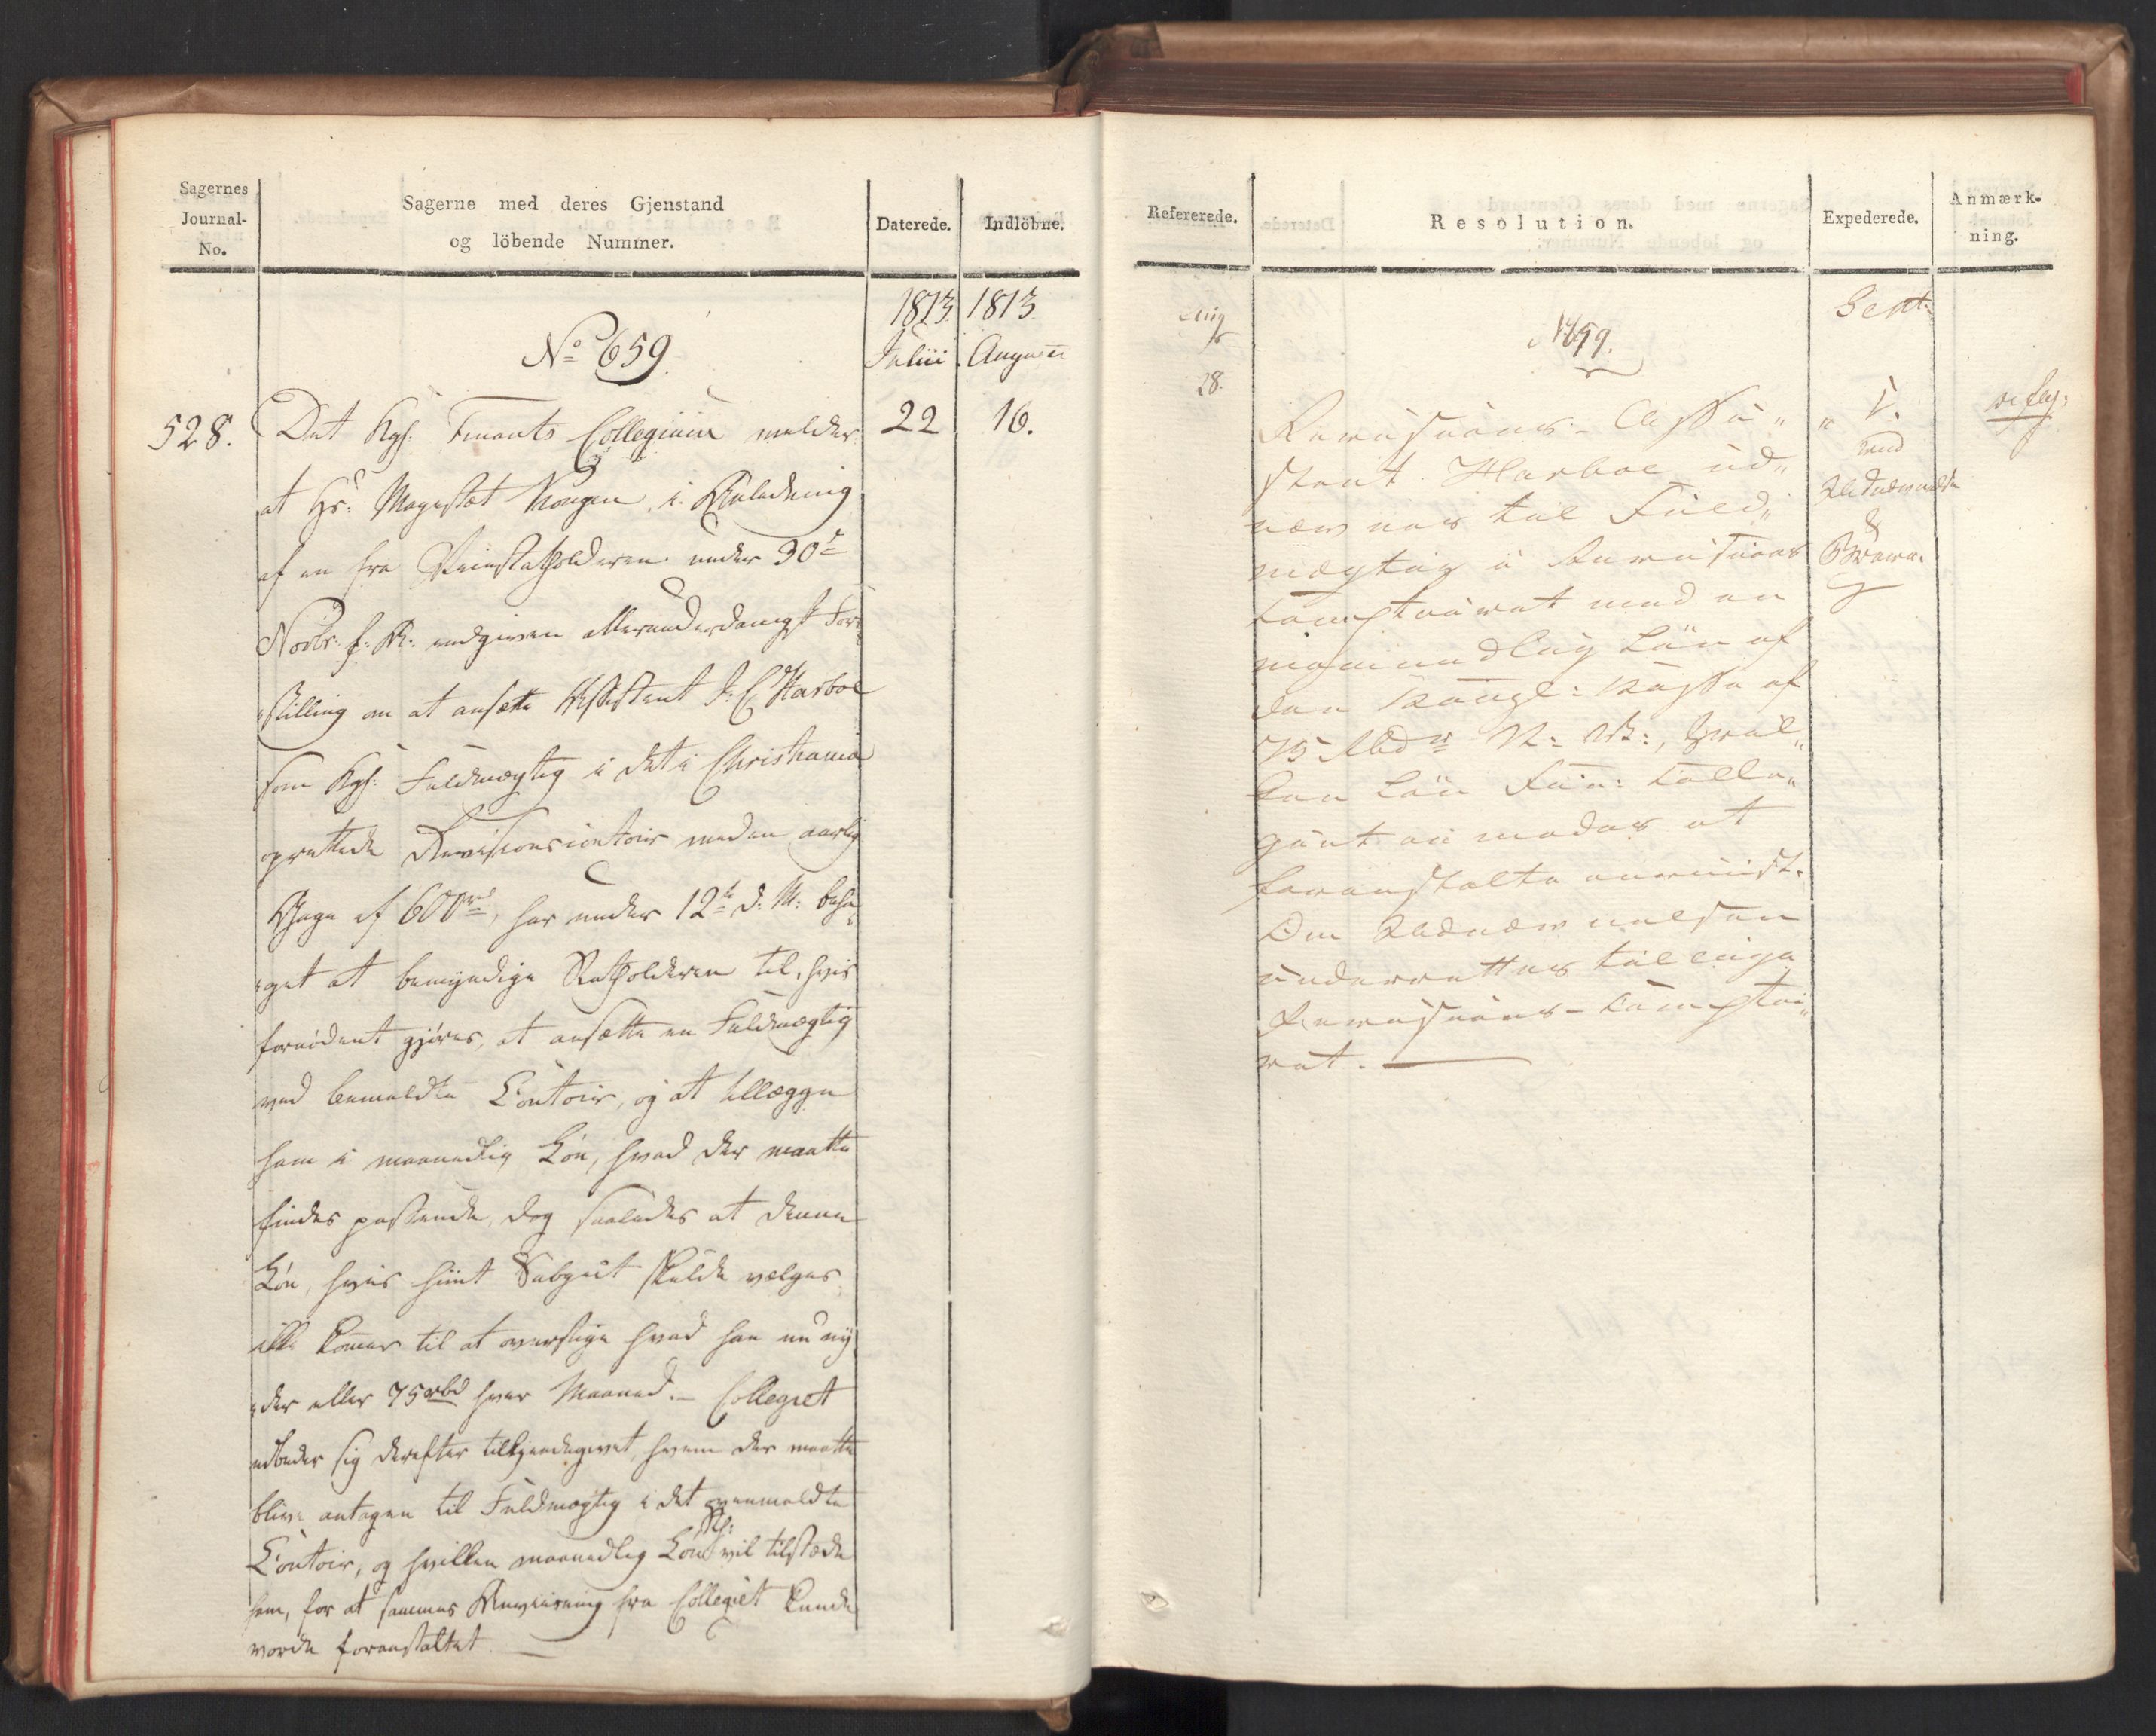 Sagernes
Journal-
No.
Sagerne med deres Gjenstand
og löbende Nummer.
Daterede.
Indlöbne.
1813.
1813
No 659.
Julii
August
528.
Det Kgl: Finants Collegium melder
22
16.
at Hs: Majestæt Kongen, i Anledning
af en fra Viceststatholderen under 30te
Novbr: f: A: indgiven allerunderdanigst Fore¬
stilling om at ansætte Assistent J: C. Harboe
som Kgl: Fuldmægtig i det i Christiania
oprettede Revisionscontoir med en aarlig
Gage af 600 rd, har under 12te d: M: beha¬
get at bemyndige Statholderen til, hvis
fornödent gjöres, at ansætte en Fuldmægtig
ved bemeldte Contoir, og at tillægge
ham i maanedlig Lön, hvad der maatte
findes passende, dog saaledes at denne
Lön, hvis hiint Subject skulde vælges
ikke kommer til at overstige hvad han nu ny¬
der eller 75 rbd hver Maaned. – Collegiet
udbeder sig derefter tilkjendegivet, hvem der maatte
blive antagen til Fuldmægtig i det ovenmeldte
Contoir, og hvilken maanedlig Lön vil tilstaae
ham, for at sammes Anviisning fra Collegiet kunde
vorde foranstaltet. —
Refererede.
Resolution.
Expederede.
Anmærk-
ning.
Aug
Sept:
659.
28.
Revisions-Assi„
„ 1.
stent Harboe ud„
med
nævnes til Fuld„
Udnævnelse
mægtig i Revisions
&
Comptoiret med en
Breve.
maanedlig Lön af
den Kongl: Kasse af
75 Rbdr N: V:, hvil„
ken Lön Fin: Colle„
giet anmodes at
foranstalte anviist.
Om Udnævnelsen
underrettes tillige
Revisions-Comptoi„
ret. —